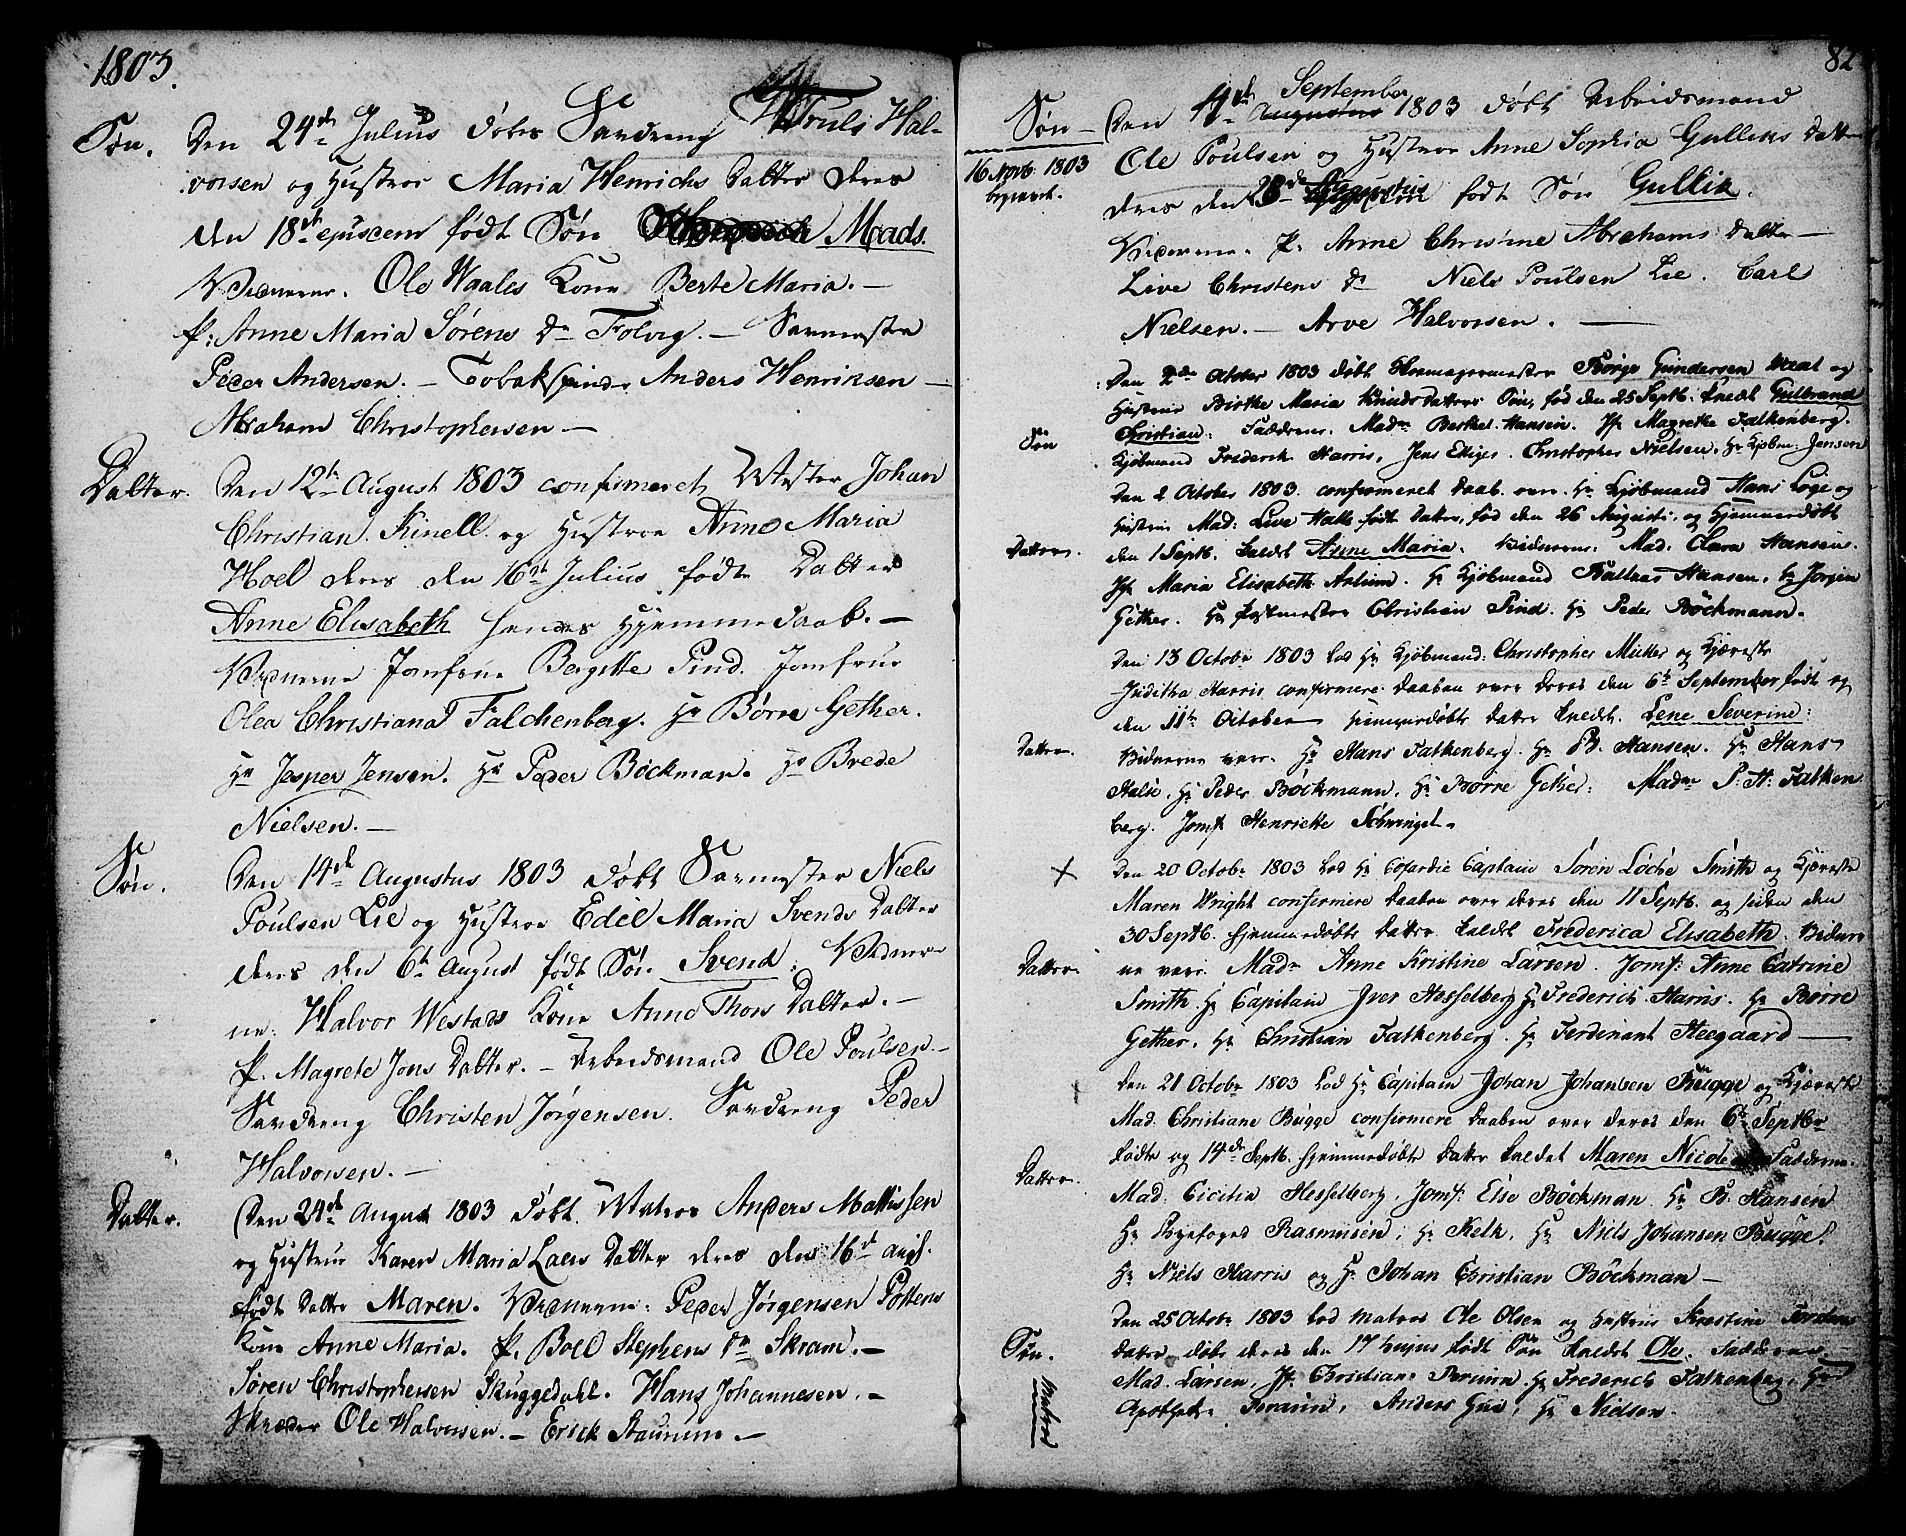 1803.
Søn. Den 24de Julius døbt Savdreng Truls Hal-
vorsen og Hustroe Maria Henrichs Datter deres
den 18de ejusdem født Søn Mads.
Vidnerne. Ole Waales Kone Berte Maria. —
P: Anne Maria Sørens Dr Folvig. — Savmester
Peder Andersen. — Tobakspinder Anders Henriksen —
Abraham Christophersen —
Datter. Den 12te August 1803 confirmeret Johan
Christian Kinell og Hustroe Anne Maria
Hoel deres den 16de Julius fødte Datter
Anne Elisabeth hendes Hjemmedaab. —
Vidnerne Jomfrue Bergitte Pind. Jomfrue
Olea Christiana Falchenberg. Hr Børre Gether.
Hr Jesper Jensen. Hr Peder Böckman. Hr Brede
Nielsen. —
Søn. Den 14de Augustus 1803 døbt Savmester Niels
Poulsen Lie og Hustroe Edel Maria Svends Datter
deres den 6te August født Søn Svend. Vidner-
ne: Halvor Westads Kone Anne Thors Datter. —
P. Magrete Jons Datter. — Arbeidsmand Ole Poulsen. —
Savdreng Christen Jørgensen. Savdreng Peder
Halvorsen. —
Datter. Den 24de August 1803 døbt Matros Anders Mattissen
og Hustrue Karen Maria Laers Datter deres den 16de aug.
født Datter Maren. Vidnerne: Peder Jørgensen Pottens
Kone Anne Maria. P. Boel Stephens Dr Skram. —
Søren Christophersen Skuggedahl. Hans Johannesen. —
Ole Halvorsen. — Erick Staurum. —
82
September
Søn — Den 4de Augustus 1803 døbt Arbeidsmand
16 Novb. 1803 Ole Poulsen og Hustroe Anne Sophia Gulliks Datter
deres den 28de Augustus født Søn Gullik.
Vidnerne. P. Anne Christine Abrahams Datter —
Live Christens Dr Niels Poulsen Lie. Carl
Nielsen. — Arve Halvorsen. —
Den 2den October 1803 døbt Børge Gundersen Waal og
Hustrue Birthe Maria Knuds Datters Søn, fød den 25 Septb. kaldt Gulbrand
Søn Christian: Fadderne. Madm Berthel Hansen. Jf. Magrethe Falkenberg.
Kjøbmand Frederik Harris, Jens Ediger. Christopher Nielsen. Hr Kjøbm: Jensen
Den 2 October 1803. confirmeret Daab. over Hr Kjøbmand Hans Loge og
Hustrue Mad: Live Datter, fød den 26 Augusti, og hjemmedøbt
Datter. den 1 Septb. kaldet Anne Maria. Vidnerne: Mad. Clara Hansen.
Jf. Maria Elisabeth Arlium. Hr Kjøbmand Baltzer Hansen. Hr Jørgen
Gether. Hr Postmester Christian Pind. Hr Peder Böckmann.
Den 13 Octobr 1803 lod Hr Kjøbmand: Christopher Müller og Kjæreste
Juditha Harris confirmere Daaben over deres den 6te September fødte og
den 11te October hjemmedøbte Datter kaldet. Lene Severine:
Datter. Vidnerne vare. Hr Hans Falkenberg. Hr B. Hansen. Hr Hans
Halse, Hr Peder Böckmann, Hr Børre Gether: Madme P. H. Falken
berg. Jomf. Henriette Schwingel.
+ Den 20 Octobr 1803 lod Hr Cofardie Capitain Søren Löche Smith og Kjæreste
Maren Wright confirmere Daaben over deres den 11 Septb. og siden den
30 Septb. hjemmedøbte Datter kaldet Frederica Elisabeth. Vidner
Datter ne vare. Madm Anne Kristine Larsen. Jomf: Anne Catrine
Smith. Hr Capitain Iver Hesselberg Hr Frederich Harris. Hr Børre
Gether. Hr Christian Falkenberg. Hr Ferdinant Steegaard —
Den 21 Octobr 1803 Lod Hr Capitain Johan Johansen Bugge og Kjæreste
Mad. Christiane Bugge confirmere Daaben over deres den 6te Septbr
fødte og 14de Septb. hjemmedøbte Datter kaldet Maren Nicoline Fadderne.
Datter. Mad. Cicilia Hesselberg, Jomf: Else Böckman. Hr B. Hansen
Hr Byefoged Rasmussen, Hr Kelk, Hr Niels Johansen Bugge.
Hr Niels Harris og Hr Johan Christian Böckman —
Den 25 Octobr 1803 lod Matros Ole Olsen og Hustrue Kirstine
Søn. Datter døbe deres den 17 hujus født Søn kaldet Ole. Fadderne —
Matros Mad. Larsen, Jf. Christiane Hr Frederich Falkenberg, Hr
Apotheker Anders Hr Nielsen.